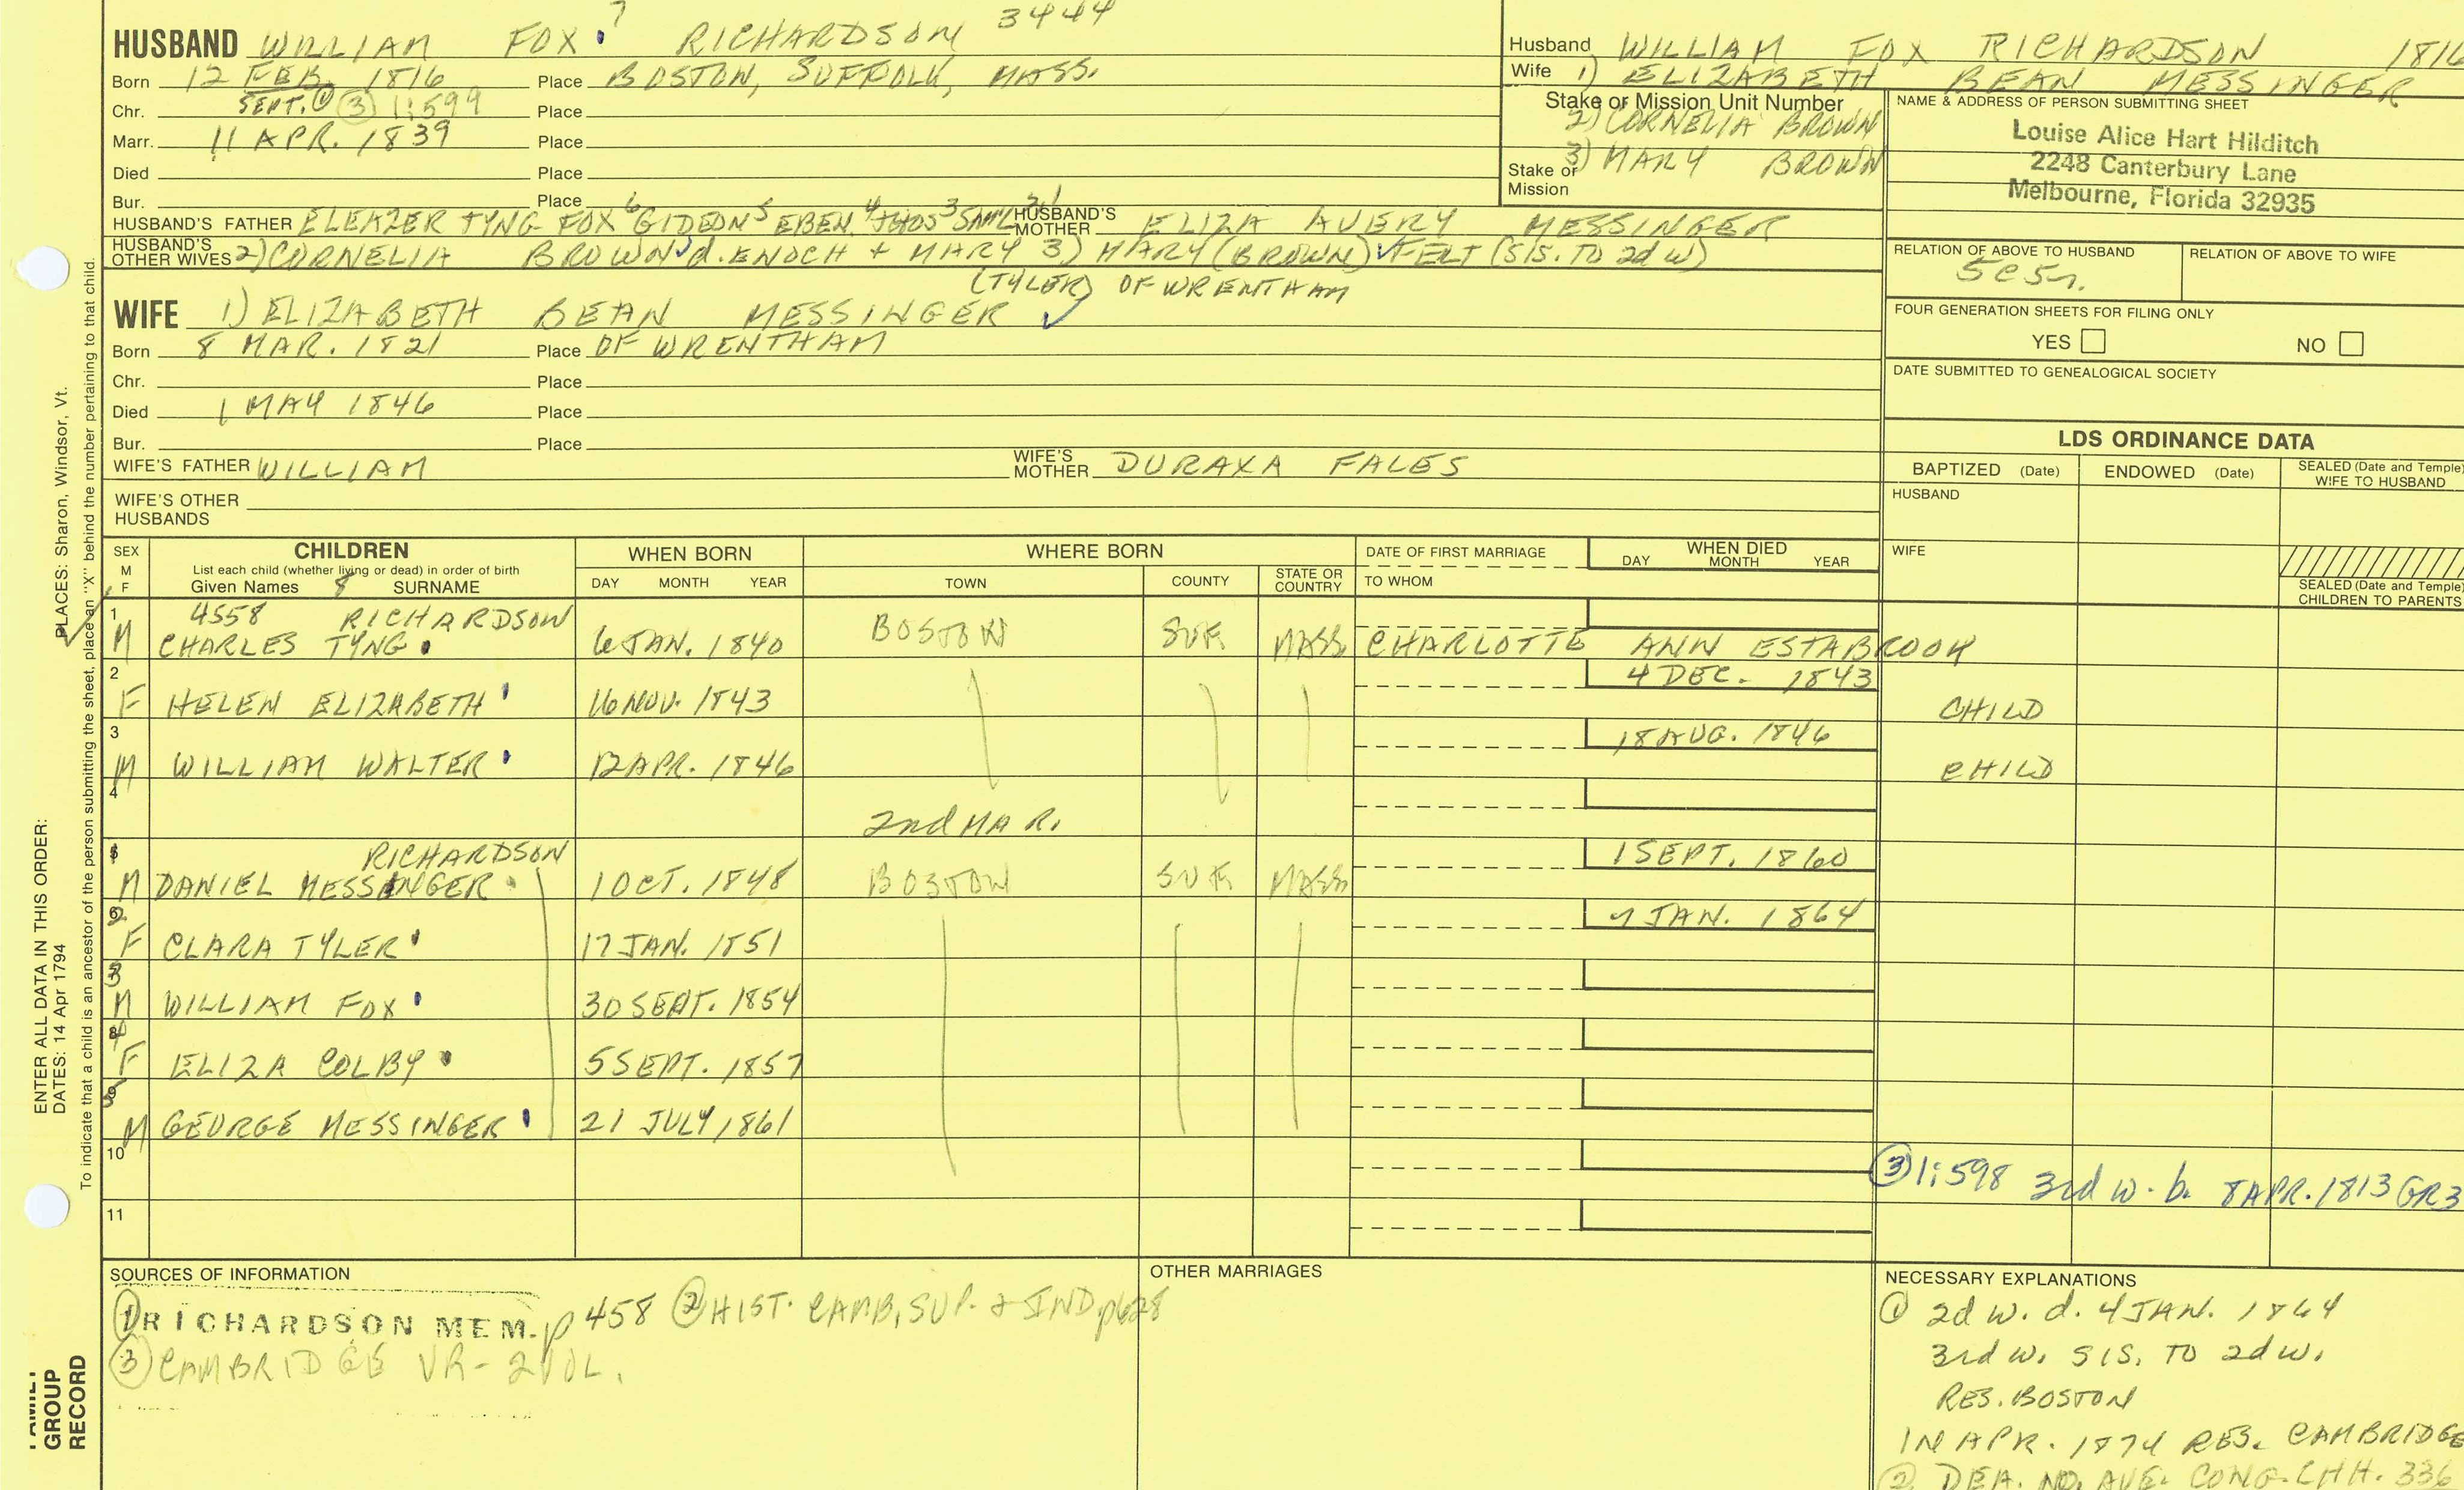 3444
HUSBAND WILLIAM FOX RICHARDSON
Born 12 FEB. 1816 Place BOSTON, SUFFOLK, MASS.
Chr. SEPT. ① ③ 1:599 Place
Marr. 11 APR. 1839 Place
Died Place
Bur. Place
HUSBAND'S FATHER ELEAZER TYNG FOX 6 GIDEON 5 EBEN. 4 3 SAML 2 1 HUSBAND'S MOTHER ELIZA AVERY MESSINGER
HUSBAND'S OTHER WIVES 2) CORNELIA BROWN d. ENOCH + MARY 3) MARY (BROWN) FELT (SIS. TO 2d W)
(TYLER) OF WRENTHAM
WIFE 1) ELIZABETH BEAN MESSINGER
Born 8 MAR. 1821 Place OF WRENTHAM
Chr. Place
Died 1 MAY 1846 Place
Bur. Place
WIFE'S FATHER WILLIAM WIFE'S MOTHER DURAXA FALES
WIFE'S OTHER HUSBANDS
Husband WILLIAM FOX RICHARDSON 1816
Wife 1) ELIZABETH BEAN MESSINGER
Stake or Mission Unit Number
2) CORNELIA BROWN
3) MARY BROWN
Stake or Mission
NAME & ADDRESS OF PERSON SUBMITTING SHEET
Louise Alice Hart Hilditch
2248 Canterbury Lane
Melbourne, Florida 32935
RELATION OF ABOVE TO HUSBAND RELATION OF ABOVE TO WIFE
FOUR GENERATION SHEETS FOR FILING ONLY
YES NO
DATE SUBMITTED TO GENEALOGICAL SOCIETY
LDS ORDINANCE DATA
BAPTIZED (Date) ENDOWED (Date) SEALED (Date and Temple) WIFE TO HUSBAND
HUSBAND
WIFE
SEALED (Date and Temple) CHILDREN TO PARENTS
SEX M F CHILDREN WHEN BORN WHERE BORN DATE OF FIRST MARRIAGE WHEN DIED
List each child (whether living or dead) in order of birth
Given Names 8 SURNAME DAY MONTH YEAR TOWN COUNTY STATE OR COUNTRY TO WHOM DAY MONTH YEAR
1 4558 RICHARDSON
M CHARLES TYNG 6 JAN. 1840 BOSTON SUF. MASS. CHARLOTTE ANN ESTABROOK
2 4 DEC. 1843
F HELEN ELIZABETH 16 NOV. 1843 CHILD
3 18 AUG. 1846
M WILLIAM WALTER 12 APR. 1846 CHILD
4
2nd MAR.
RICHARDSON 1 SEPT. 1860
M DANIEL MESSINGER 1 OCT. 1848 BOSTON SUF. MASS
JAN. 1864
F CLARA TYLER 17 JAN. 1851
M WILLIAM FOX 30 SEPT. 1854
F ELIZA COLBY 5 SEPT. 1857
M GEORGE MESSINGER 21 JULY 1861
10
③ 1:598 3rd w. b. 8 APR. 1813 GR3
11
SOURCES OF INFORMATION
① RICHARDSON MEM. p 458 ② HIST. CAMB, SUP. & IND p628
③ CAMBRIDGE VR-2 VOL.
OTHER MARRIAGES
NECESSARY EXPLANATIONS
① 2d w. d. 4 JAN. 1864
3rd w. SIS. TO 2d w.
RES. BOSTON
IN APR. 1874 RES. CAMBRIDGE
② DEA. NO. AVE. CONG. CHH. 336
PLACES: Sharon, Windsor, Vt.
To indicate that a child is an ancestor of the person submitting the sheet, place an "X" behind the number pertaining to that child.
ENTER ALL DATA IN THIS ORDER:
DATES: 14 Apr 1794
FAMILY
GROUP
RECORD